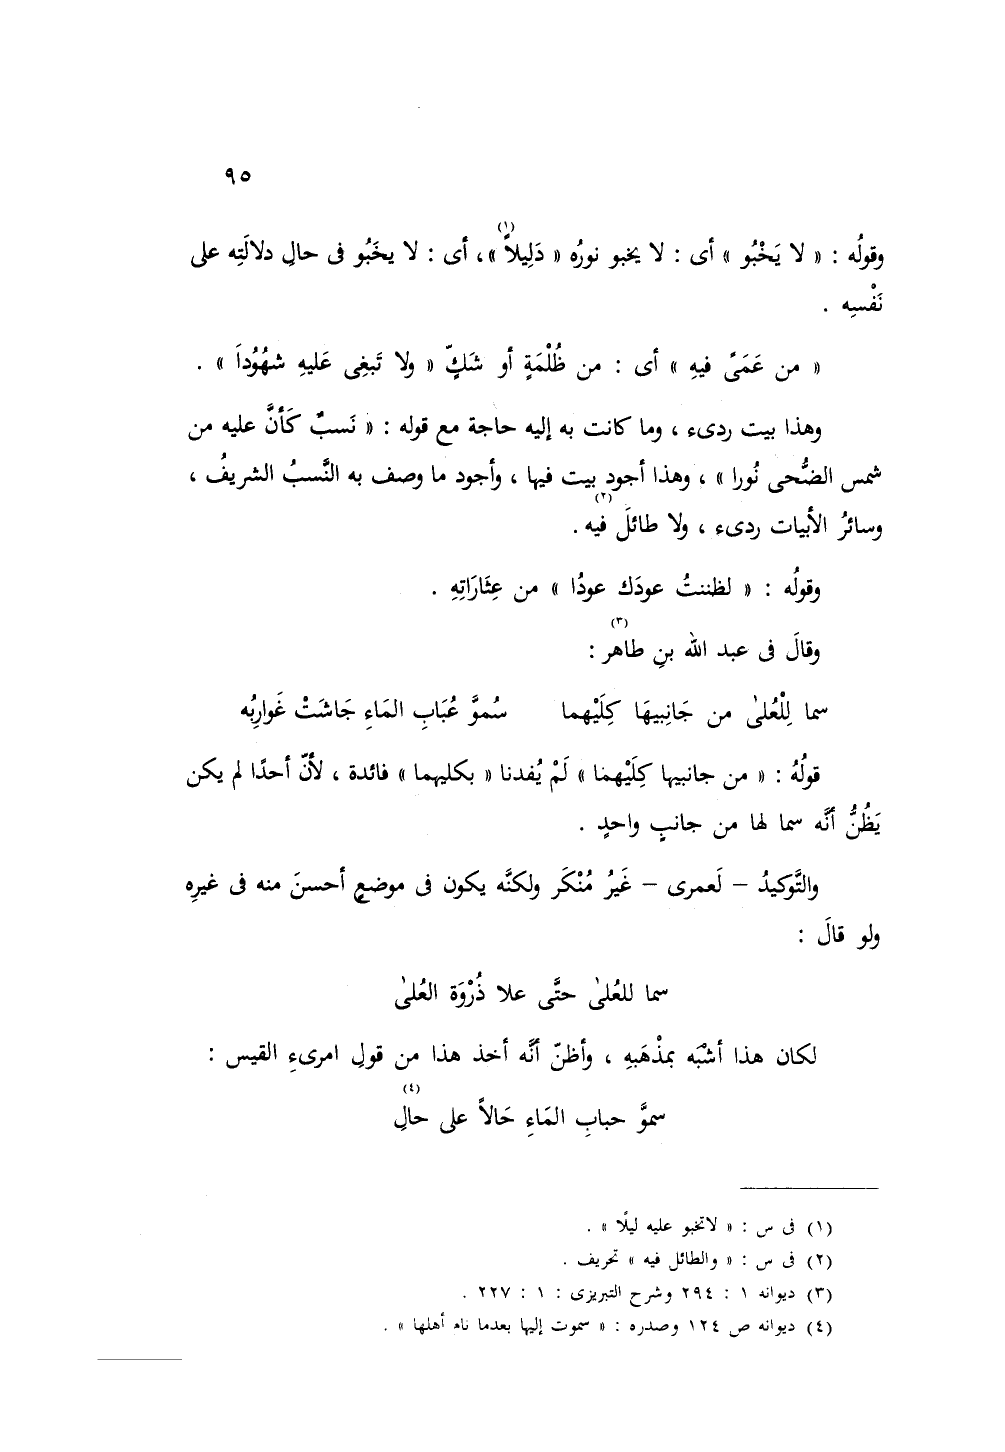 ٩٥
وقولُه : « لا يَخْبُو » أى : لا يخبو نورُه « دَلِيلاً(١) » ، أى : لا يخَبُو فى حالِ دلالَتِه على
نَفْسِه .
« من عَمَىً فيهِ » أى : من ظُلْمَةٍ أو شَكٍّ « ولا تَبغِى عَليهِ شهُوُداَ » .
وهذا بيت ردىء ، وما كانت به إليه حاجة مع قوله : « نَسبٌ كَأنَّ عليه من
شمس الضُّحى نُورا » ، وهذا أجود بيت فيها ، وأجود ما وصف به النَّسبُ الشريفُ ،
وسائرُ الأبيات ردىء ، ولا طائلَ فيه(٢) .
وقولُه : « لظننتُ عودَك عودُا » من عِثَارَاتِهِ .
وقالَ فى عبد الله بنِ طاهر(٣) :
سما لِلْعُلىٰ من جَانِبيهَا كِلَيْهما سُموَّ عُبَابِ المَاءِ جَاشَتْ غَوارِبُه
قولُهُ : « من جانبيها كِلَيْهمَا » لَمْ يُفدنا « بكليهما » فائدة ، لأنّ أحدًا لم يكن
يَظُنُّ أنَّه سما لها من جانبٍ واحدٍ .
والتَّوكيدُ – لَعمرى – غَيرُ مُنْكَر ولكنَّه يكون فى موضعٍ أحسنَ منه فى غيرِه
ولو قالَ :
سما للعُلىٰ حتَّى علا ذُرْوَة العُلىٰ
لكان هذا أشبَه بمذْهَبهِ ، وأظنّ أنَّه أخذ هذا من قولِ امرىءِ القيس :
سموَّ حبابِ المَاءِ حَالاً على حالِ(٤)
(١) فى س : « لاتخبو عليه ليلًا » .
(٢) فى س : « والطائل فيه » تحريف .
(٣) ديوانه ١ : ٢٩٤ وشرح التبريزى : ١ : ٢٢٧ .
(٤) ديوانه ص ١٢٤ وصدره : « سموت إليها بعدما نام أهلها » .